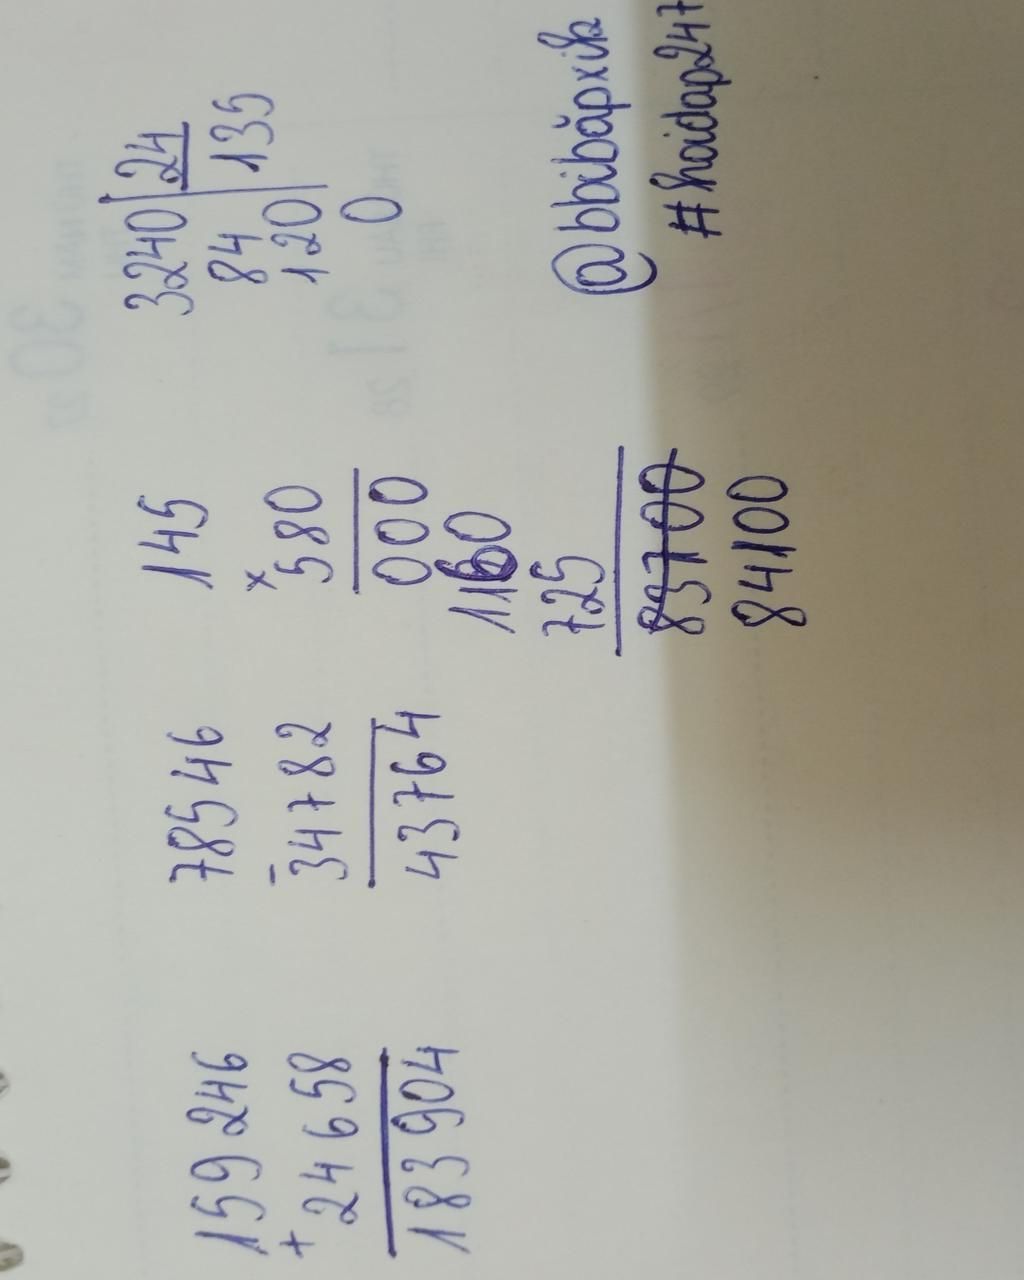 159246
+
24658
183904
78546
-
34782
43764
145
x
580
000
1160
725
83700
84100
3240 24
84 135
120
0
@bbibăpxih
#hoidap247